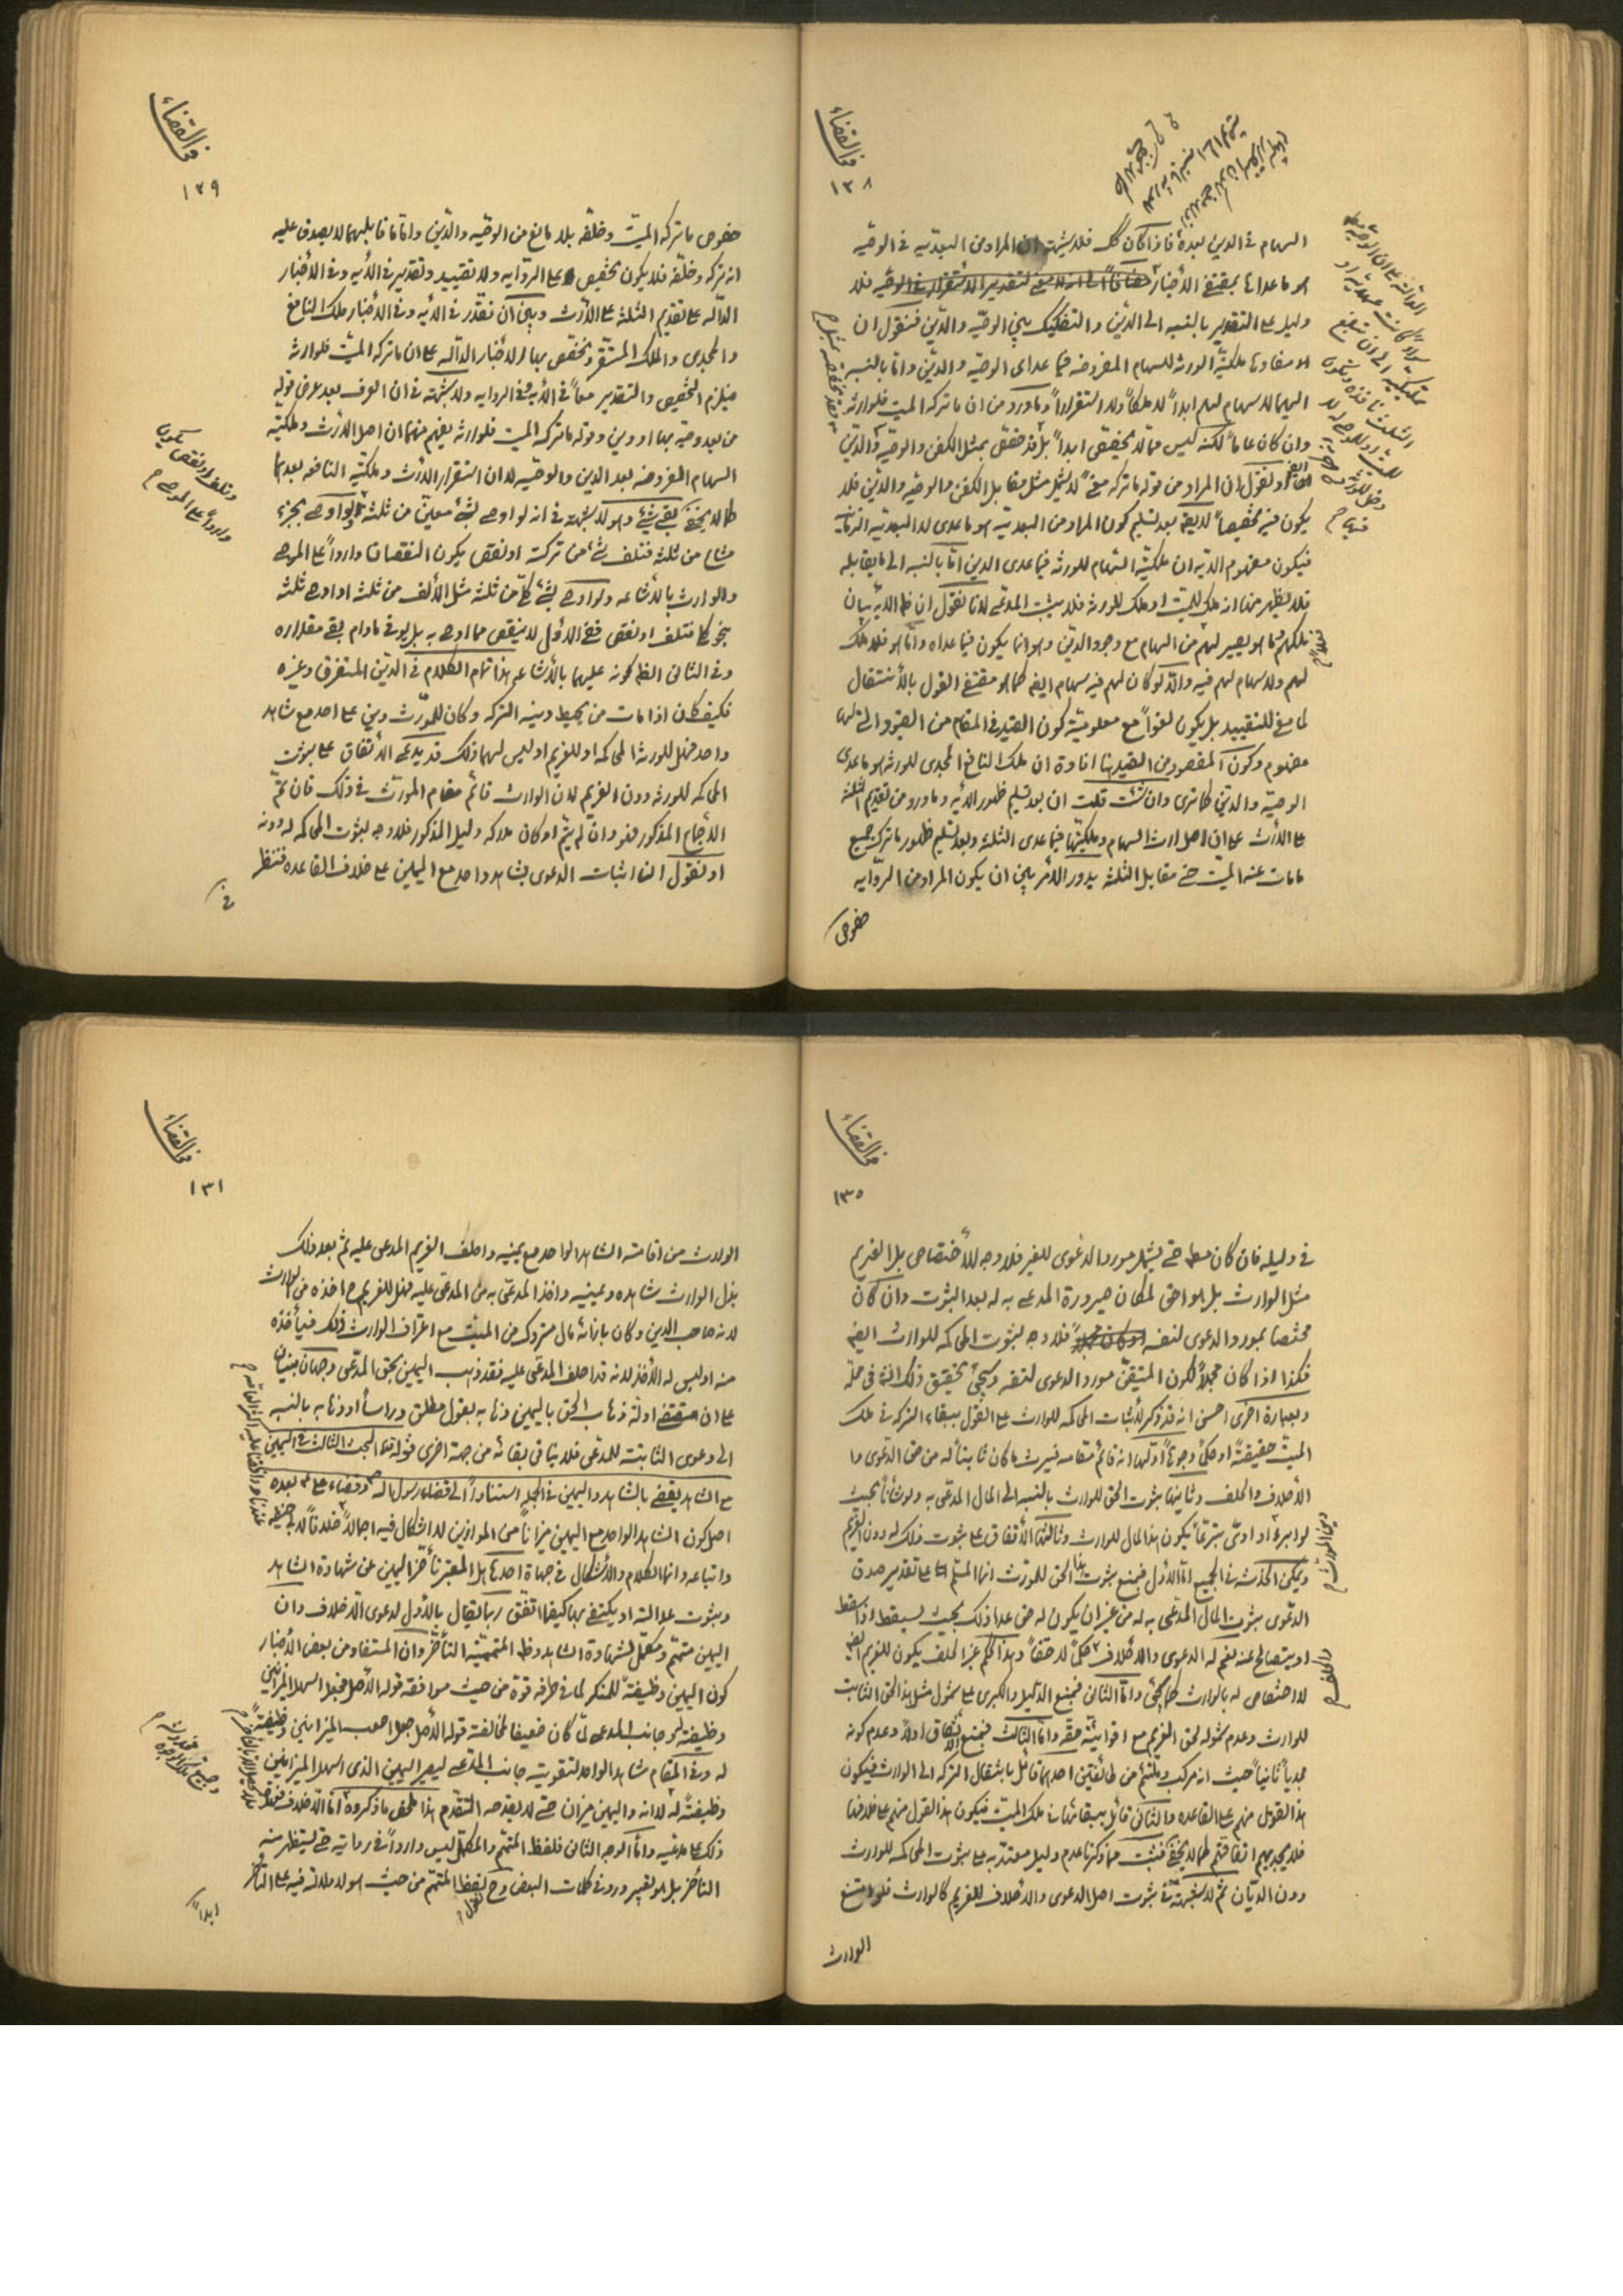 في القضاء
١٢٨
السهام في الدين بعده فاذا كان كك فلا شبهة ان المراد من البعديه في الوصيه
هو ما عداها بمقتضى الأخبار فلا
دليل على التقدير بالنسبه الى الدين والتفكيك بين الوصيه والدين فنقول ان
مفادها ملكية الورثه للسهام المفروضه فيما عداى الوصيه والدين واما بالنسبه
اليهما لا سهام لهم ابداً لا ملكاً ولا استقراراً وما ورد من ان ما تركه الميت فلوارثه
وان كان عاماً لكنه ليس مما لا يخصص ابداً بل قد خصص بمثل الكفن والوصيه والدين
او نقول ان المراد من قوله ما تركه لا يشمل مثل مقابل الكفن والوصيه والدين فلا
يكون فيه تخصيصاً لا يقال بعد تسليم كون المراد من البعديه هو ما عدى لا البعديه الزمانيه
فيكون مفهوم الايه ان ملكية السهام للورثه فيما عدى الدين اما بالنسبه الى ما يقابله
فلا يظهر منها انه ملك للميت او ملك للورثه فلا يثبت المدعى لانا نقول ان ظ الايه بيان
تملكهم لما هو يصير لهم من السهام مع وجود الدين وهو انما يكون فيما عداه واما هو فلا ملك
لهم ولا سهام لهم فيه والا لو كان لهم فيه سهام ايضا كما هو مقتضى القول بالأنتقال
لما صح للتقييد بل يكون لغواً مع معلومية كون القيد في المقام من القيود التي لها
مفهوم وكون المقصود من القيد هنا افادة ان ملك النافع المجدى للورثه هو ما عدى
الوصيه والدين كما ترى وان شئت قلت ان بعد تسليم ظهور الأيه وما ورد من تقديم الثلثه
على الأرث على ان اصل ارث السهام وملكيتها فيما عدى الثلثه وبعد تسليم ظهور ما ترك جميع
ما مات عنه الميت حتى مقابل الثلثه يدور الأمر بين ان يكون المراد من الروايه
خصوص
في القضاء
١٢٩
خصوص ما تركه الميت وخلفه بلا مانع من الوصيه والدين واما ما قابلهما لا يصدق عليه
انه تركه وخلفه فلا يكون تخصيص على الروايه ولا تقييد وتقدير في الأيه وفي الأخبار
الداله على تقديم الثلثه على الأرث وبين ان نقدر في الأيه وفي الأخبار ملك النافع
والمجدى والملك المستقر ونخصص بها الأخبار الداله على ان ما تركه الميت فلوارثه
فيلزم التخصيص والتقدير معاً في الأيه وفي الروايه ولا شبهة في ان العرف بعد عرض قوله
من بعد وصيه بها او دين وقوله ما تركه الميت فلوارثه يفهم منهما ان اصل الارث وملكية
السهام المفروضه بعد الدين والوصيه لا ان استقرار الأرث وملكية النافعه بعدهما
كما لا يخفى بقى شئ وهو لا شبهة في انه لو اوصى بشئ معين من ثلثه او اوصى بجزء
مشاع من ثلثه فتلف شئ من تركته او نقص يكون النقصان وارداً على الموصى
والوارث بالأشاعه ولو اوصى بشئ كلى من ثلثه مثل الألف من ثلثه او اوصى ثلثه
بنحو كلى فتلف او نقص ففى الأول لا ينقص مما اوصى به بل يوفى ما دام بقى مقداره
وفي الثانى الظ كونه عليهما بالأشاعه هذا تمام الكلام في الدين المستغرق وغيره
فكيف كان اذا مات من يحيط دينه التركه وكان للمورث دين على احد مع شاهد
واحد فهل للورثه المحاكمه او للغريم او ليس لهما ذلك قد يدعى الأتفاق على ثبوت
المحاكمه للورثه دون الغريم لان الوارث قائم مقام المورث في ذلك فان تم
الأجماع المذكور فهو وان لم يتم او كان مدركه دليل المذكور فلا وجه لثبوت المحاكمه له دونه
او نقول ان اثبات الدعوى بشاهد واحد مع اليمين على خلاف القاعده فننظر
في
في القضاء
١٣٠
في دليله فان كان مط حتى يشمل مورد الدعوى للغير فلا وجه للأختصاص بل الغريم
مثل الوارث بل هو احق لمكان صيرورة المدعى به له بعد الثبوت وان كان
مختصا بمورد الدعوى لنفسه فلا وجه لثبوت المحاكمه للوارث ايضا
فكذا اذا كان مجملاً لكون المتيقن مورد الدعوى لنفسه وسيجئ تحقيق ذلك انشاء في محله
وبعبارة اخرى احسن انه قد ذكر لأثبات المحاكمه للوارث على القول ببقاء التركه في ملك
الميت حقيقةً او حكماً وجوهاً اولها انه قائم مقامه فيرث ما كان ثابتاً له من حق الدعوى وا
الأحلاف والحلف وثانيها ثبوت الحق للوارث بالنسبه الى المال المدعى به ولو شأناً بحيث
لو ابرء او ادى تبرعاً يكون هذا المال للوارث وثالثها الأتفاق على ثبوت ذلك له دون الغريم
ويمكن الخدشه في الجميع اما الأول فبمنع ثبوت هذا الحق للمورث انما المسلم على تقدير صدق
الدعوى ثبوت المال المدعى به له من غير ان يكون له حق عدا ذلك بحيث يسقط اذا سقط
او يتصالح عنه نعم له الدعوى والأحلاف حكماً لا حقاً وهذا الحكم غير الحلف يكون للغريم ايضا
لا اختصاص له بالوارث كما سيجئ واما الثانى فبمنع الدليل والكبرى على شمول مثل هذا الحق الثابت
للوارث وعدم شموله لحق الغريم مع اقوائيته حقه واما الثالث فبمنع الأتفاق اولاً وعدم كونه
مجدياً ثانياً حيث انه مركب وملتئم من طائفتين احدهما قائل بانتقال التركه الى الوارث فيكون
هذا القول منهم على القاعده والثانى قائل ببقائها في ملك الميت فيكون هذا القول منهم على خلافها
فلا يجدى اتفاقهم كما لا يخفى فثبت مما ذكرنا عدم دليل معتد به على ثبوت المحاكمه للوارث
دون الديان ثم لا شبهة في ثبوت اصل الدعوى والأحلاف للغريم كالوارث فلو امتنع
الوارث
في القضاء
١٣١
الوارث من اقامة الشاهد الواحد مع يمينه واحلف الغريم المدعى عليه ثم بعد ذلك
بذل الوارث شاهده ويمينه واخذ المدعى به من المدعى عليه فهل للغريم ح اخذه من الوارث
لانه صاحب الدين وكان بازائه مال متروك من الميت مع اعتراف الوارث ذلك فيأخذه
منه او ليس له الأخذ لانه قد احلف المدعى عليه فقد ذهب اليمين بحق المدعى وجهان مبنيان
على ان مقتضى ادلة ذهاب الحق باليمين ذهابه بقول مطلق ورأساً او ذهابه بالنسبه
الى دعوى الثابتة للمدعى فلا ينافى بقائه من جهة اخرى قوله قده المبحث الثالث في اليمين
مع الشاهد يقضى بالشاهد واليمين في الجمله استناداً الى قضاء رسول الله ص وقضاء على ع بعده
اصل كون الشاهد الواحد مع اليمين ميزاناً من الموازين لا اشكال فيه اجمالاً خلافاً لأبى حنيفه
واتباعه وانما الكلام والأشكال في جهات احدها هل المعتبر تأخر اليمين عن شهادة الشاهد
وثبوت عدالته او يكتفى بها كيفما اتفق ربما يقال بالأول لدعوى اللا خلاف وان
اليمين متمم ومكمل لشهادة الشاهد وظ المتممية التأخر وان المستفاد من بعض الأخبار
كون اليمين وظيفة للمنكر لما في طرفه قوة من حيث موافقة قوله الأصل فجعل اسهل الميزانين
وظيفته وجانب المدعى لما كان ضعيفا لمخالفة قوله الأصل جعل اصعب الميزانين وظيفةً
له وفي المقام شاهد الواحد لتقويته جانب المدعى ليصير اليمين الذى اسهل الميزانين
وظيفةً له لا انه واليمين ميزان حتى لا يقدح التقدم هذا ملخص ما ذكروه اما اللا خلاف
ذلك على مدعيه واما الوجه الثانى فلفظ المتمم والمكمل ليس وارداً في روايه حتى يستظهر منه
التأخر بل هو تعبير ورد في كلمات البعض وح لفظ المتمم من حيث هو لا دلالة فيه على التأخر
ابداً